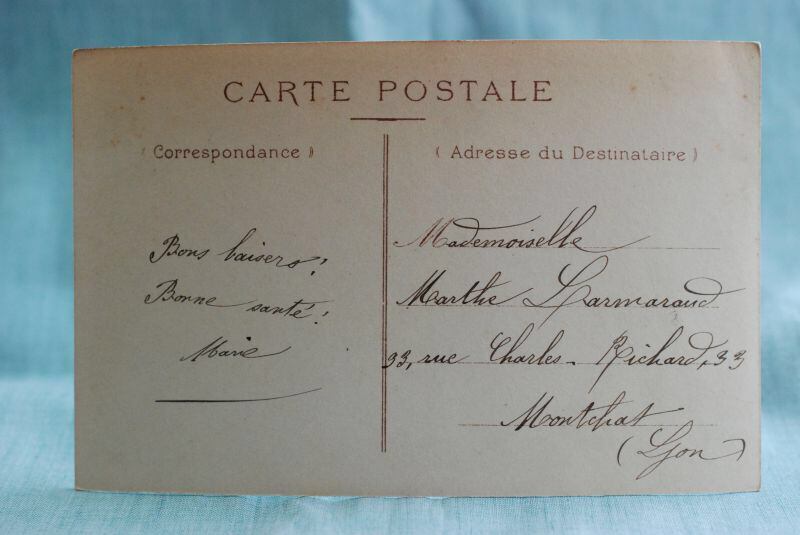 CARTE POSTALE
(Correspondance)
(Adresse du Destinataire)
Bons baisers!
Bonne santé!
Marie
Mademoiselle
Marthe Larmaraud
33, rue Charles-Richard, 33
Montchat
(Lyon)